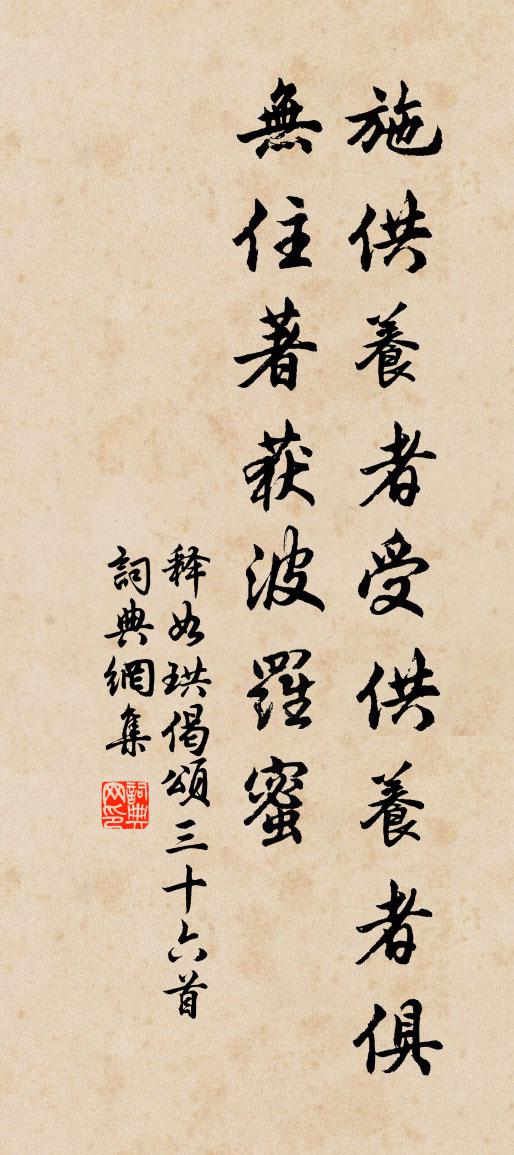 施供養者受供養者俱
無住著获波羅蜜
释如珙偈頌三十六首
詞典網集
詞典网印